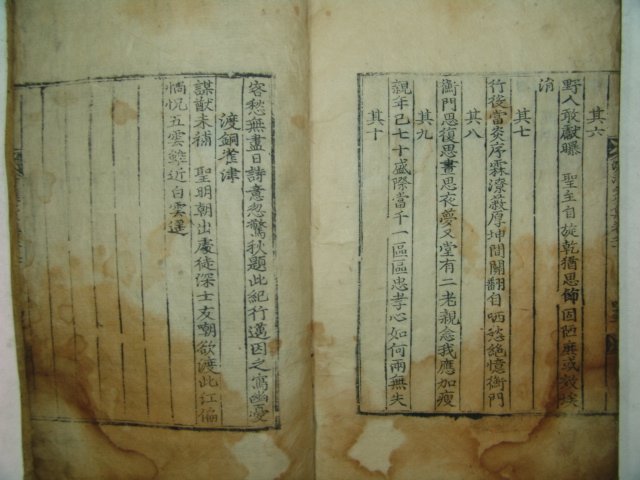 其六
野人敢獻曝　聖主自旋乾猶思飾固陋無或效埃
涓
其七
行後當炎序霖潦蔽厚坤間關翻自哂愁絶憶衡門
其八
衡門思復思晝思夜夢又堂有二老親念我應加瘦
其九
親年已七十盛際當千一區區忠孝心如何兩無失
其十
客愁無盡日詩意忽驚秋題此紀行邁因之寫幽憂
渡銅雀津
謀猷未補　聖明朝出處徒深士友嘲欲渡此江偏
惝怳五雲雖近白雲遥